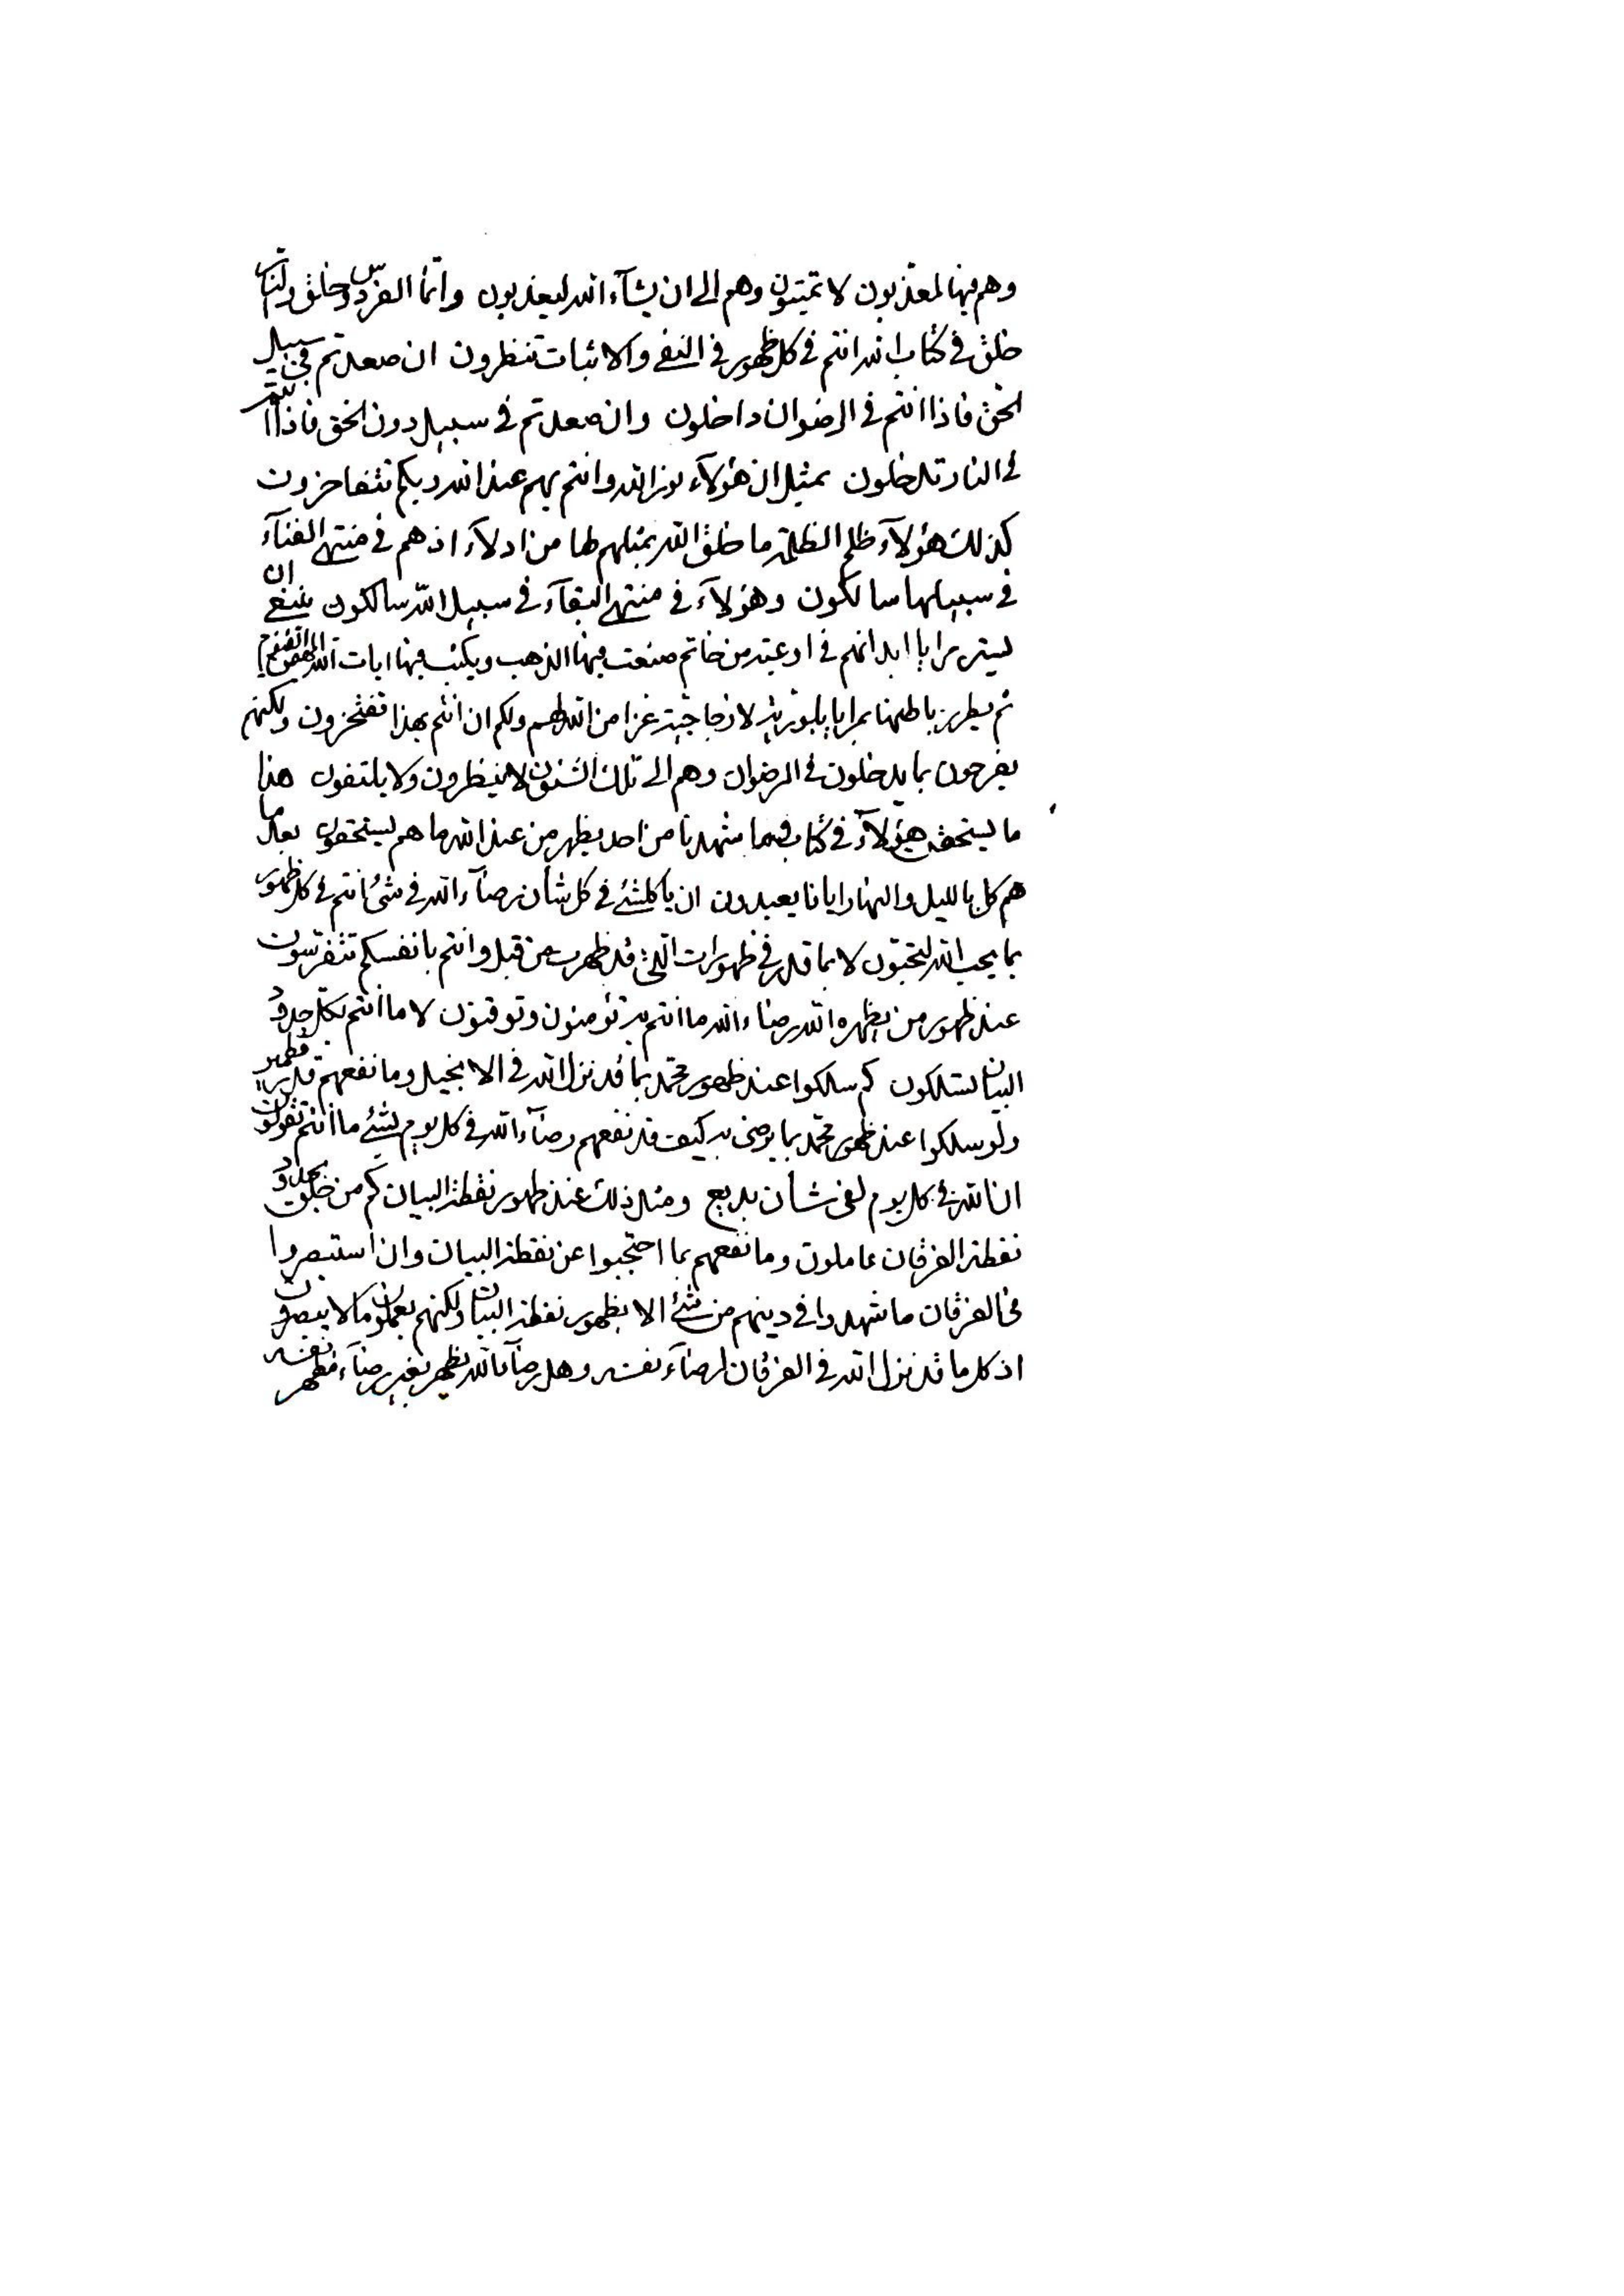 وهم فيها لمعذبون لا تميتون وهم الى ان يشآء الله ليعذبون وانما الفردوس خلق والنار
خلق في كتاب الله انتم في كل ظهور في النفي والاثبات تنظرون ان صعدتم في سبيل
الحق فاذا انتم في الرضوان داخلون وان صعدتم في سبيل دون الحق فاذا انتم
في النار تدخلون بمثل ان هؤلآء نور الله وانتم بهم عند الله ربكم تتفاخرون
كذلك هؤلآء ظلم الظلمة ما خلق الله بمثلهم لها من ادلآء اذ هم في منتهى الفنآء
في سبيلها سالكون وهؤلآء في منتهى البقآء في سبيل الله سالكون ينبغي ان
ليستر مرايا ابدانهم في اوعية من خاتم صنعت فيها الذهب ويكتب فيها ايات الله
ثم يطرز باطنها بمرايا بلورية لا زجاجية عزا من الله لهم ولكم ان انتم بهذا تفتخرون ولكنهم
يفرحون بما يدخلون في الرضوان وهم الى تلك الشئون لا ينظرون ولا يلتفون هذا
ما يستحق هؤلآء في كتاب فيما شهدنا من احد يظهر من عند الله ما هم ليستحقون بعد ما
هم كل بالليل والنهار ايانا يعبدون ان يا كلشئ في كل شأن رضآء الله في شئ انتم في كل ظهور
بما يحب الله لتحبون لا بما قدر في ظهورات التي قد ظهرت من قبل وانتم بانفسكم تتفرسون
عند ظهور من يظهره الله رضاء الله ما انتم به تؤمنون وتوقنون لا ما انتم بكل حدود
البيان لتسلكون كم سلكوا عند ظهور محمد بما قد نزل الله في الانجيل وما نفعهم قدر قطمير
ولو سلكوا عند ظهور محمد بما يرضى به كيف قد نفعهم رضآء الله في كل يوم لشئ ما انتم تقولون
ان الله في كل يوم لفي شأن بديع ومثل ذلك عند ظهور نقطة البيان كم من خلق بحدود
نقطة الفرقان عاملون وما نفعهم بما احتجبوا عن نقطة البيان وان استبصروا
في الفرقان ما شهدوا في دينهم من شئ الا بظهور نقطة البيان ولكنهم يعملون ما لا يبصرون
اذ كل ما قد نزل الله في الفرقان لرضآء نفسه وهل رضآء الله يظهر بغير رضآء مظهر نفسه